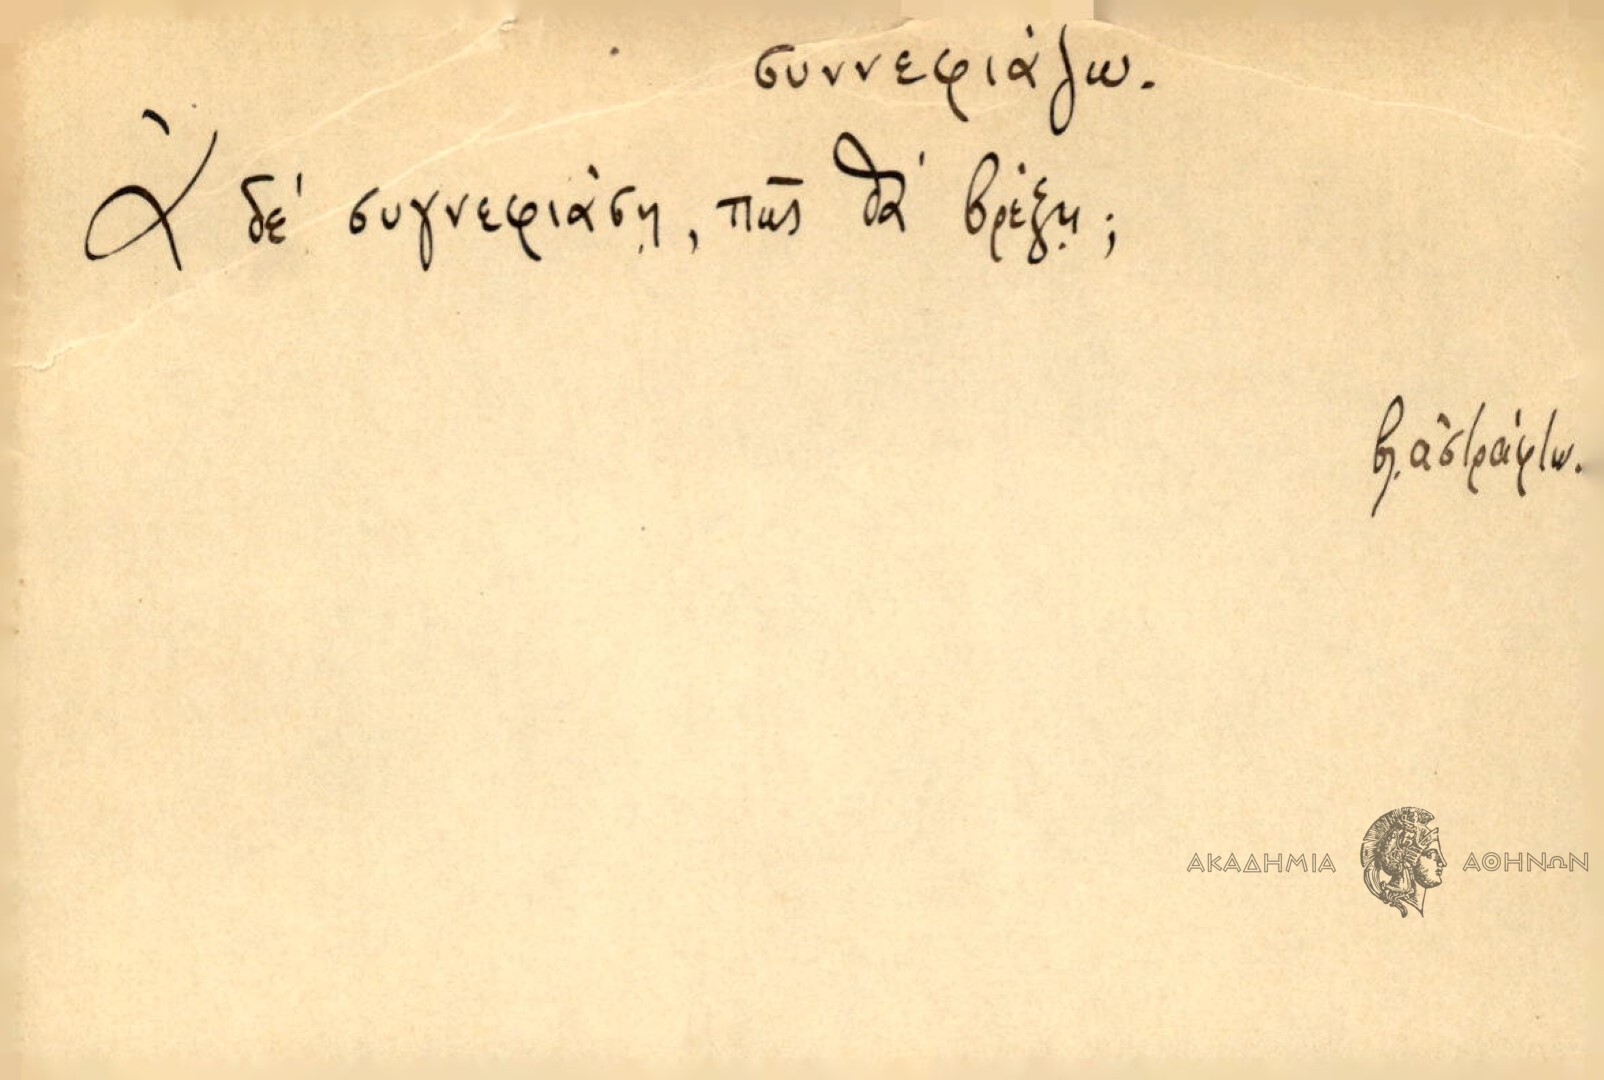 συννεφιάζω.
Ἂ δὲ συγνεφιάσῃ, πῶς θὰ βρέξῃ;
βλ. ἀστράφτω.
ΑΚΑΔΗΜΙΑ ΑΘΗΝΩΝ